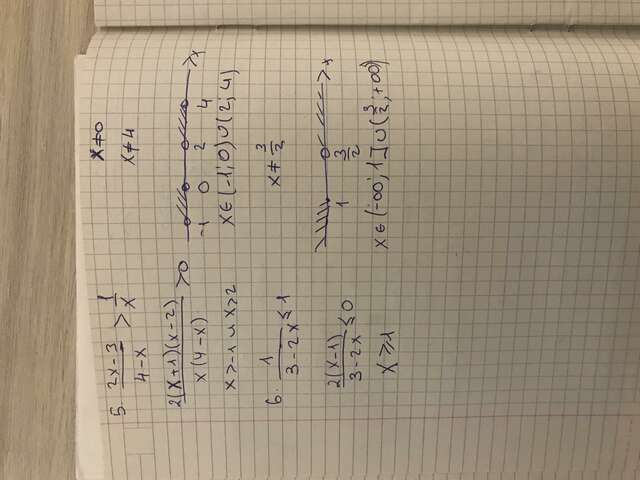 5. (2x-3)/(4-x) > 1/x    x≠0
x≠4
2(x+1)(x-2)/x(4-x) >0
-1 0 2 4 x
x>-1 ∪ x>2    x∈(-1; 0)∪(2; 4)
6. 1/(3-2x) ≤ 1    x≠3/2
2(x-1)/(3-2x) ≤0
1 3/2 x
x⩾1    x∈(-∞; 1]∪(3/2; +∞)